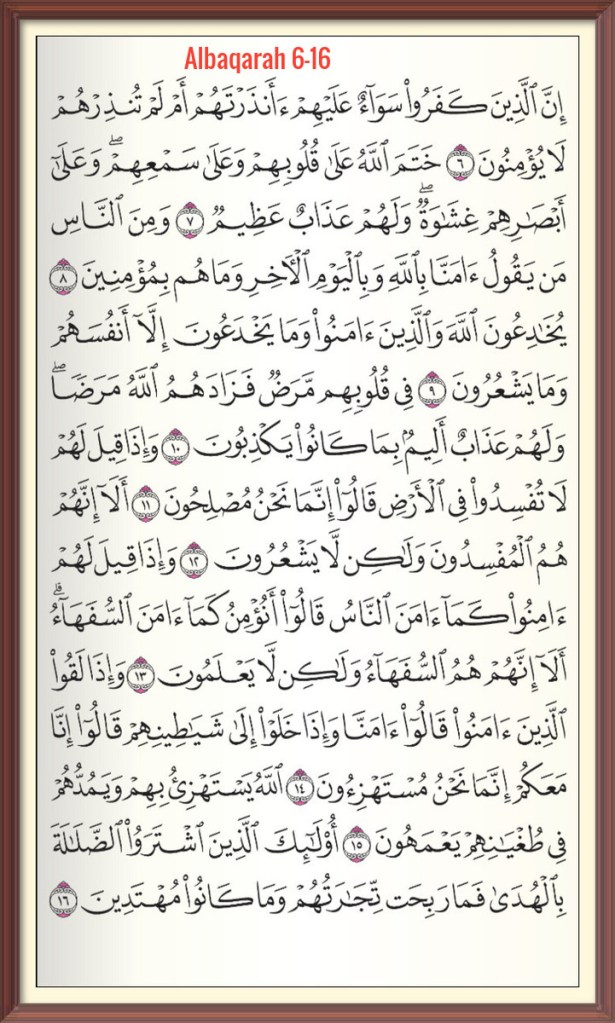 Albaqarah 6-16
إِنَّ ٱلَّذِينَ كَفَرُوا۟ سَوَآءٌ عَلَيْهِمْ ءَأَنذَرْتَهُمْ أَمْ لَمْ تُنذِرْهُمْ
لَا يُؤْمِنُونَ ٦ خَتَمَ ٱللَّهُ عَلَىٰ قُلُوبِهِمْ وَعَلَىٰ سَمْعِهِمْ ۖ وَعَلَىٰٓ
أَبْصَٰرِهِمْ غِشَٰوَةٌ ۖ وَلَهُمْ عَذَابٌ عَظِيمٌ ٧ وَمِنَ ٱلنَّاسِ
مَن يَقُولُ ءَامَنَّا بِٱللَّهِ وَبِٱلْيَوْمِ ٱلْءَاخِرِ وَمَا هُم بِمُؤْمِنِينَ ٨
يُخَٰدِعُونَ ٱللَّهَ وَٱلَّذِينَ ءَامَنُوا۟ وَمَا يَخْدَعُونَ إِلَّآ أَنفُسَهُمْ
وَمَا يَشْعُرُونَ ٩ فِى قُلُوبِهِم مَّرَضٌ فَزَادَهُمُ ٱللَّهُ مَرَضًا ۖ
وَلَهُمْ عَذَابٌ أَلِيمٌۢ بِمَا كَانُوا۟ يَكْذِبُونَ ١٠ وَإِذَا قِيلَ لَهُمْ
لَا تُفْسِدُوا۟ فِى ٱلْأَرْضِ قَالُوٓا۟ إِنَّمَا نَحْنُ مُصْلِحُونَ ١١ أَلَآ إِنَّهُمْ
هُمُ ٱلْمُفْسِدُونَ وَلَٰكِن لَّا يَشْعُرُونَ ١٢ وَإِذَا قِيلَ لَهُمْ
ءَامِنُوا۟ كَمَآ ءَامَنَ ٱلنَّاسُ قَالُوٓا۟ أَنُؤْمِنُ كَمَآ ءَامَنَ ٱلسُّفَهَآءُ ۗ
أَلَآ إِنَّهُمْ هُمُ ٱلسُّفَهَآءُ وَلَٰكِن لَّا يَعْلَمُونَ ١٣ وَإِذَا لَقُوا۟
ٱلَّذِينَ ءَامَنُوا۟ قَالُوٓا۟ ءَامَنَّا وَإِذَا خَلَوْا۟ إِلَىٰ شَيَٰطِينِهِمْ قَالُوٓا۟ إِنَّا
مَعَكُمْ إِنَّمَا نَحْنُ مُسْتَهْزِءُونَ ١٤ ٱللَّهُ يَسْتَهْزِئُ بِهِمْ وَيَمُدُّهُمْ
فِى طُغْيَٰنِهِمْ يَعْمَهُونَ ١٥ أُو۟لَٰٓئِكَ ٱلَّذِينَ ٱشْتَرَوُا۟ ٱلضَّلَٰلَةَ
بِٱلْهُدَىٰ فَمَا رَبِحَت تِّجَٰرَتُهُمْ وَمَا كَانُوا۟ مُهْتَدِينَ ١٦